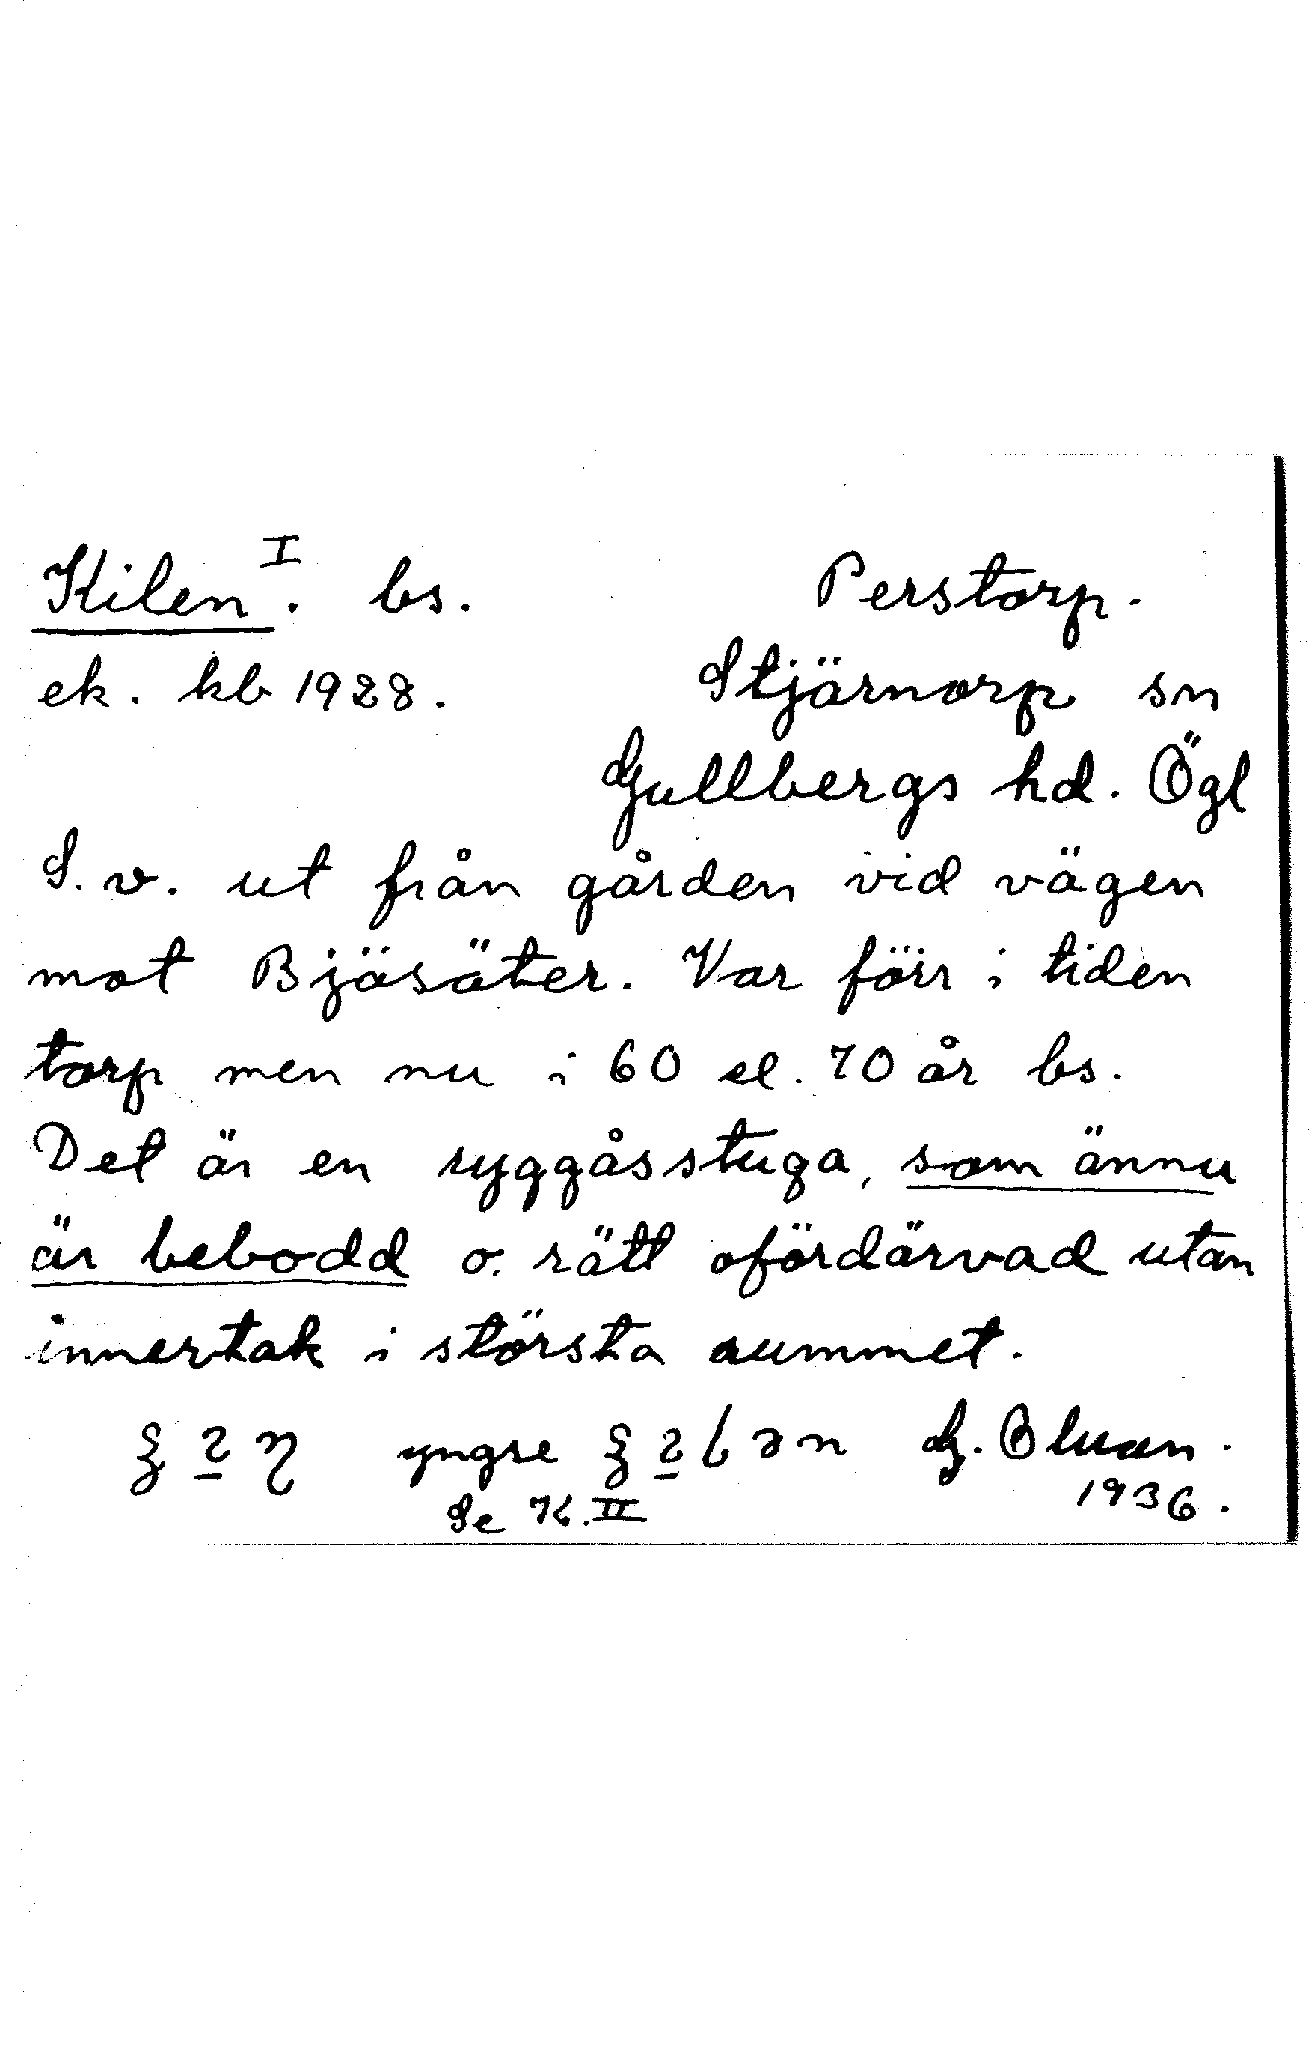 Kilen I. bs. Perstorp.
ek. kb 1928. Stjärnorp sn
Gullbergs hd. Ögl
S.v. ut från gården vid vägen
mot Bjäsäter. Var förr i tiden
torp men nu i 60 el. 70 år bs.
Det är en ryggåsstuga, som ännu
är bebodd o. rätt ofördärvad utan
innertak i största rummet.
yngre G. Bluan.
Se K.II 1936.